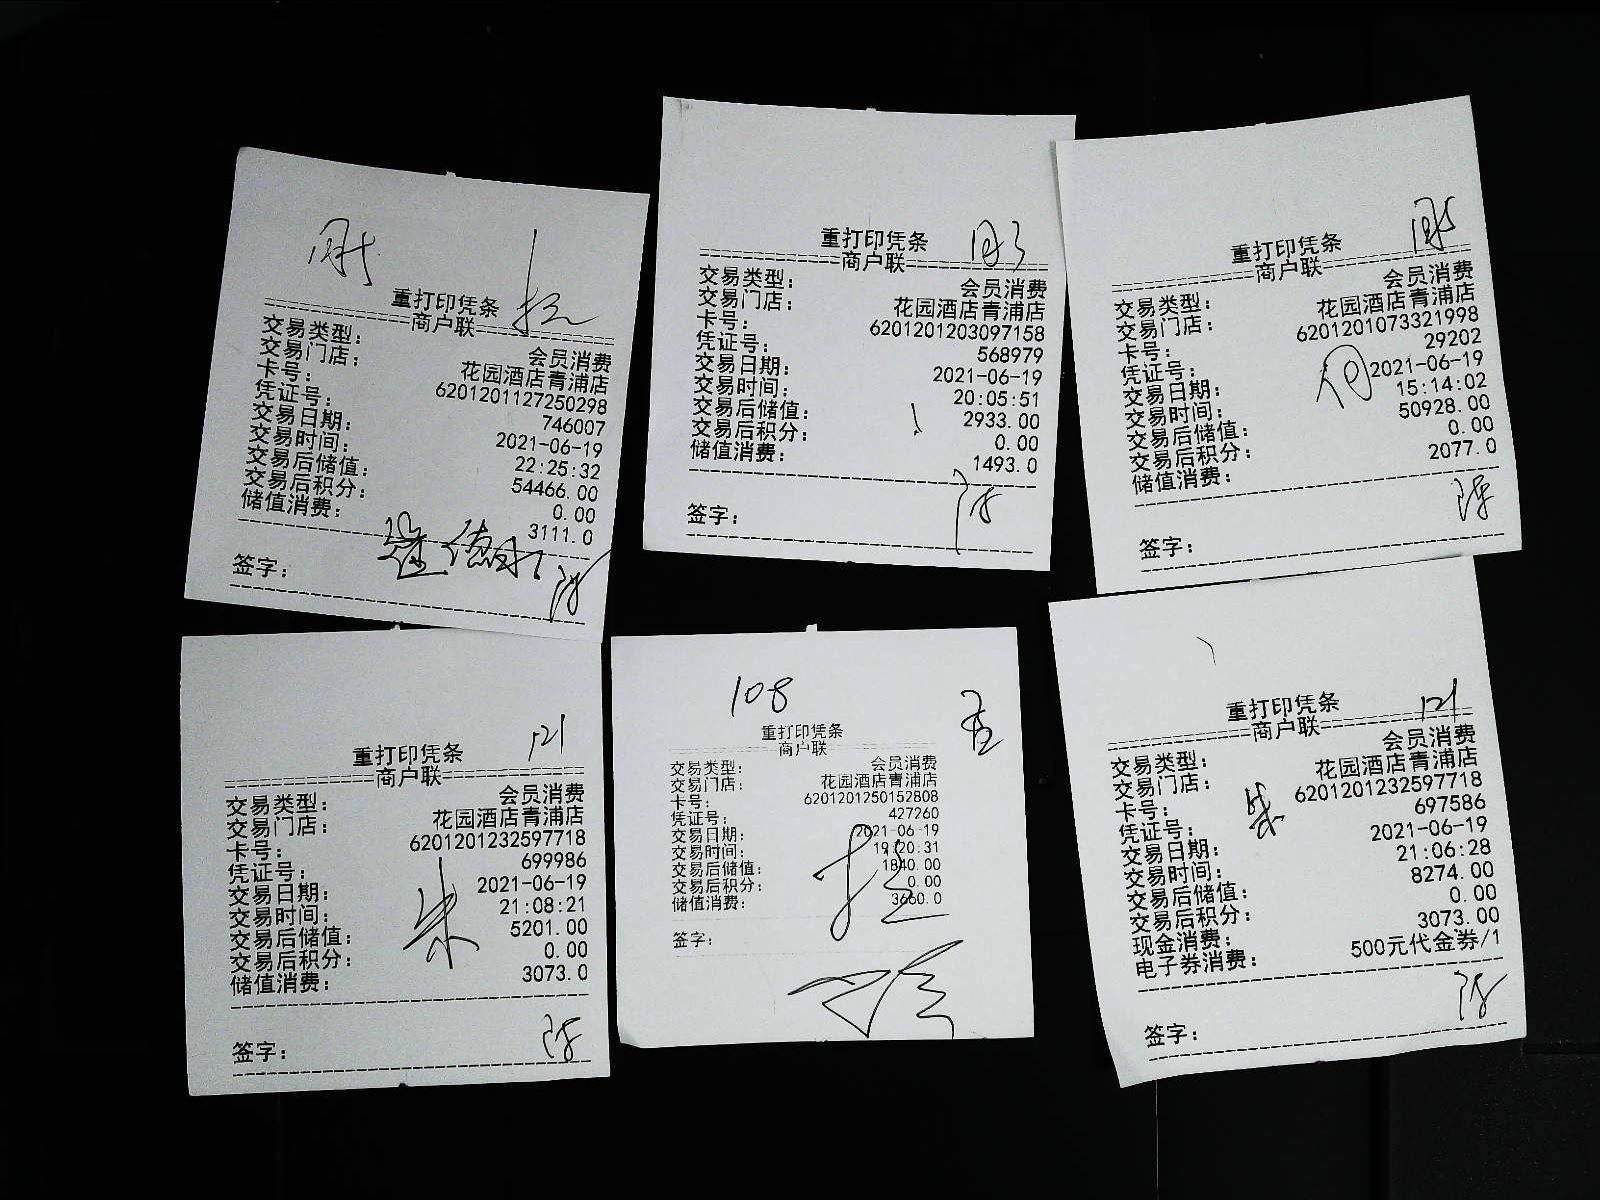 重打印凭条
商户联
交易类型: 会员消费
交易门店: 花园酒店青浦店
卡号: 6201201127250298
凭证号: 746007
交易日期: 2021-06-19
交易时间: 22:25:32
交易后储值: 54466.00
交易后积分: 0.00
储值消费: 3111.0
签字:
重打印凭条
商户联
交易类型: 会员消费
交易门店: 花园酒店青浦店
卡号: 6201201203097158
凭证号: 568979
交易日期: 2021-06-19
交易时间: 20:05:51
交易后储值: 2933.00
交易后积分: 0.00
储值消费: 1493.0
签字:
重打印凭条
商户联
交易类型: 会员消费
交易门店: 花园酒店青浦店
卡号: 6201201073321998
凭证号: 29202
交易日期: 2021-06-19
交易时间: 15:14:02
交易后储值: 50928.00
交易后积分: 0.00
储值消费: 2077.0
签字:
121
重打印凭条
商户联
交易类型: 会员消费
交易门店: 花园酒店青浦店
卡号: 6201201232597718
凭证号: 699986
交易日期: 2021-06-19
交易时间: 21:08:21
交易后储值: 5201.00
交易后积分: 0.00
储值消费: 3073.0
签字:
108
重打印凭条
商户联
交易类型: 会员消费
交易门店: 花园酒店青浦店
卡号: 6201201250152808
凭证号: 427260
交易日期: 2021-06-19
交易时间: 19:20:31
交易后储值: 1840.00
交易后积分: 0.00
储值消费: 3660.0
签字:
121
重打印凭条
商户联
交易类型: 会员消费
交易门店: 花园酒店青浦店
卡号: 6201201232597718
凭证号: 697586
交易日期: 2021-06-19
交易时间: 21:06:28
交易后储值: 8274.00
交易后积分: 0.00
现金消费: 3073.00
电子券消费: 500元代金券/1
签字: